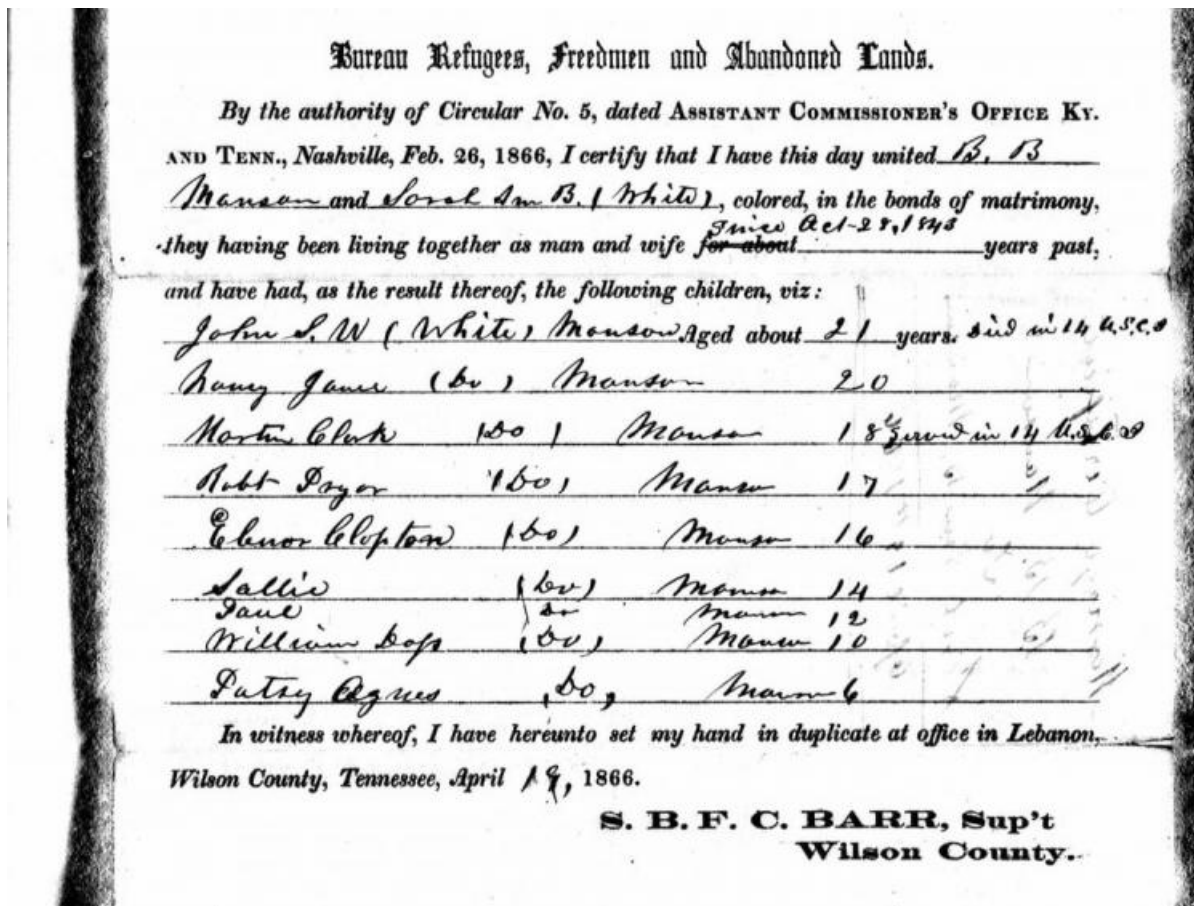 Bureau Refugees, Freedmen and Abandoned Lands.
By the authority of Circular No. 5, dated ASSISTANT COMMISSIONER'S OFFICE KY.
AND TENN., Nashville, Feb. 26, 1866, I certify that I have this day united B. B
Manson and Sarah Ann B. (White), colored, in the bonds of matrimony,
since Oct-28, 1843
they having been living together as man and wife for about years past,
and have had, as the result thereof, the following children, viz:
John S. W (White) Manson Aged about 21 years. Died in 14 U.S.C.I
Nancy Jane (Do) Manson 20
Martin Clark (Do) Manson 18 Served in 14 U.S.C.I
Robt Pryor (Do) Manson 17
Elenor Clopton (Do) Manson 16
Sallie (Do) Manson 14
Do Manson 12
William (Do) Manson 10
Patsy Agnes (Do) Manson 6
In witness whereof, I have hereunto set my hand in duplicate at office in Lebanon,
Wilson County, Tennessee, April 19, 1866.
S. B. F. C. BARR, Sup't
Wilson County.